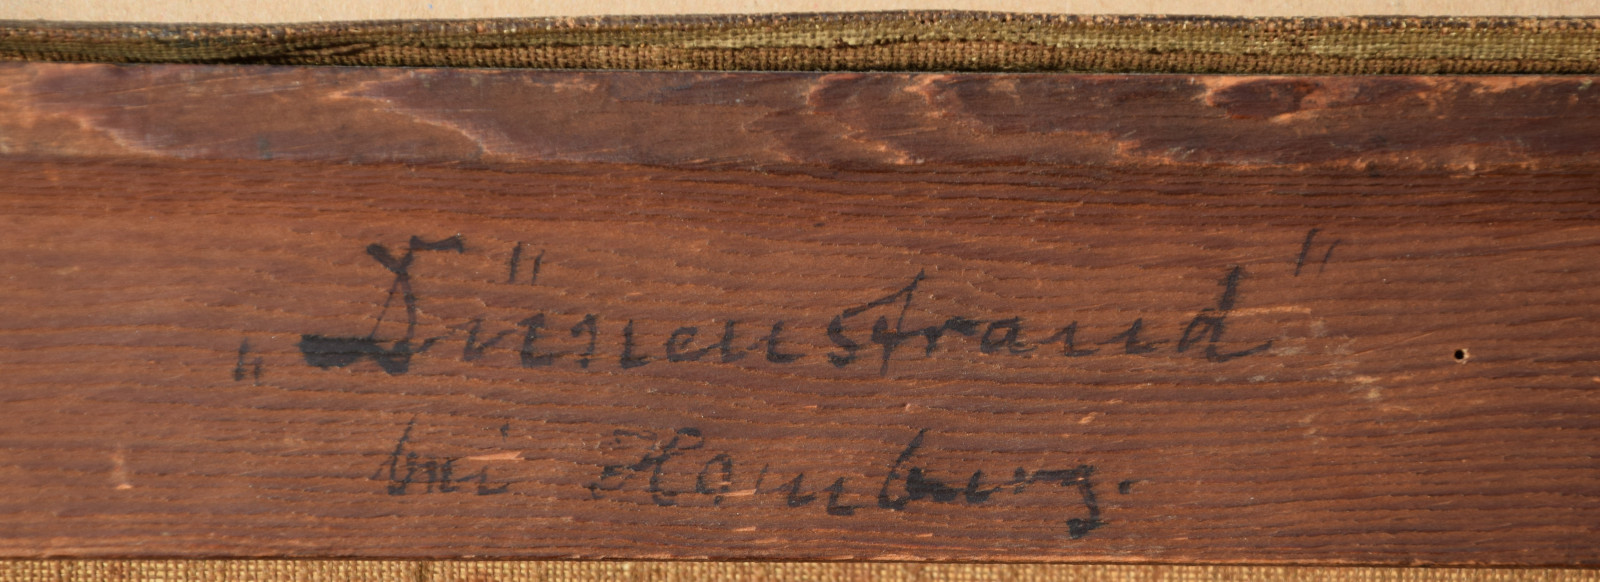 „Dünenstrand"
bei Hamburg.